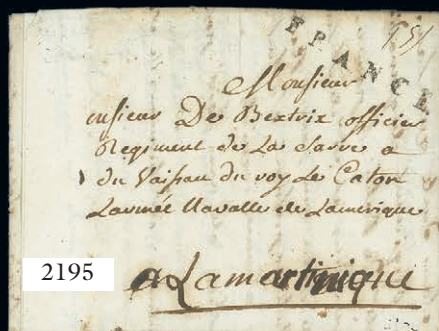 FRANCE
Monsieur
nsieur De Bextrix officier
Regiment de La Sarre a
du Vaisau du roy Le Caton
Larmée Navalle de Lamerique
a Lamartinique
2195